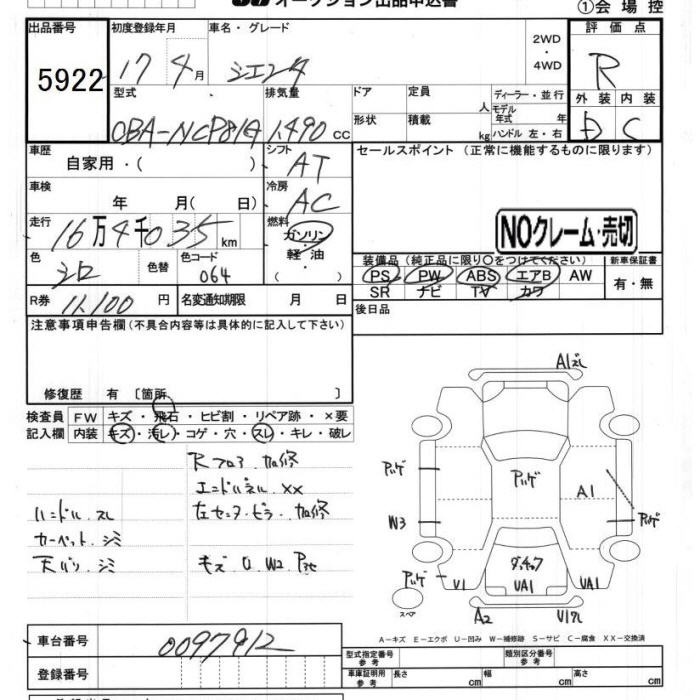 オークション出品申込書
①会場控
出品番号
5922
初度登録年月
17 4月
車名・グレード
シエンタ
2WD
・
4WD
評価点
R
外装 内装
D C
型式
CBA-NCP81G
排気量
1,490 cc
ドア
定員
人
形状
積載
kg
ディーラー・並行
モデル年式 年
ハンドル 左・右
車歴
自家用・( )
シフト
AT
セールスポイント (正常に機能するものに限ります)
NOクレーム・売切
車検
年 月( 日)
冷房
AC
走行
16万4千035km
燃料
ガソリン
・
軽油
( )
色
シロ
色替
色コード
064
装備品 (純正品に限り○をつけてください)
PS PW ABS エアB AW
SR ナビ TV カワ
新車保証書
有・無
R券 11,100円
名変通知期限 月 日
後日品
注意事項申告欄(不具合内容等は具体的に記入して下さい)
修復歴 有 〔箇所 〕
検査員記入欄
FW キズ・飛石・ヒビ割・リペア跡・×要
内装 キズ・汚レ・コゲ・穴・スレ・キレ・破レ
Rフロア.加修
エンドパネル.XX
ハンドル.スレ
左センターピラー.加修
カーペット.シミ
天バリ.シミ
キズ.U.W2.
A1ズレ
Pハゲ
W3
Pハゲ
A1
Pハゲ
Pハゲ
V1
UA1
UA1
スペア
A2
A-キズ E-エクボ U-凹み W-補修跡 S-サビ C-腐食 XX-交換済
車台番号
0097912
登録番号
型式指定番号
参考
類別区分番号
参考
車庫証明用
参考
長さ cm
幅 cm
高さ cm